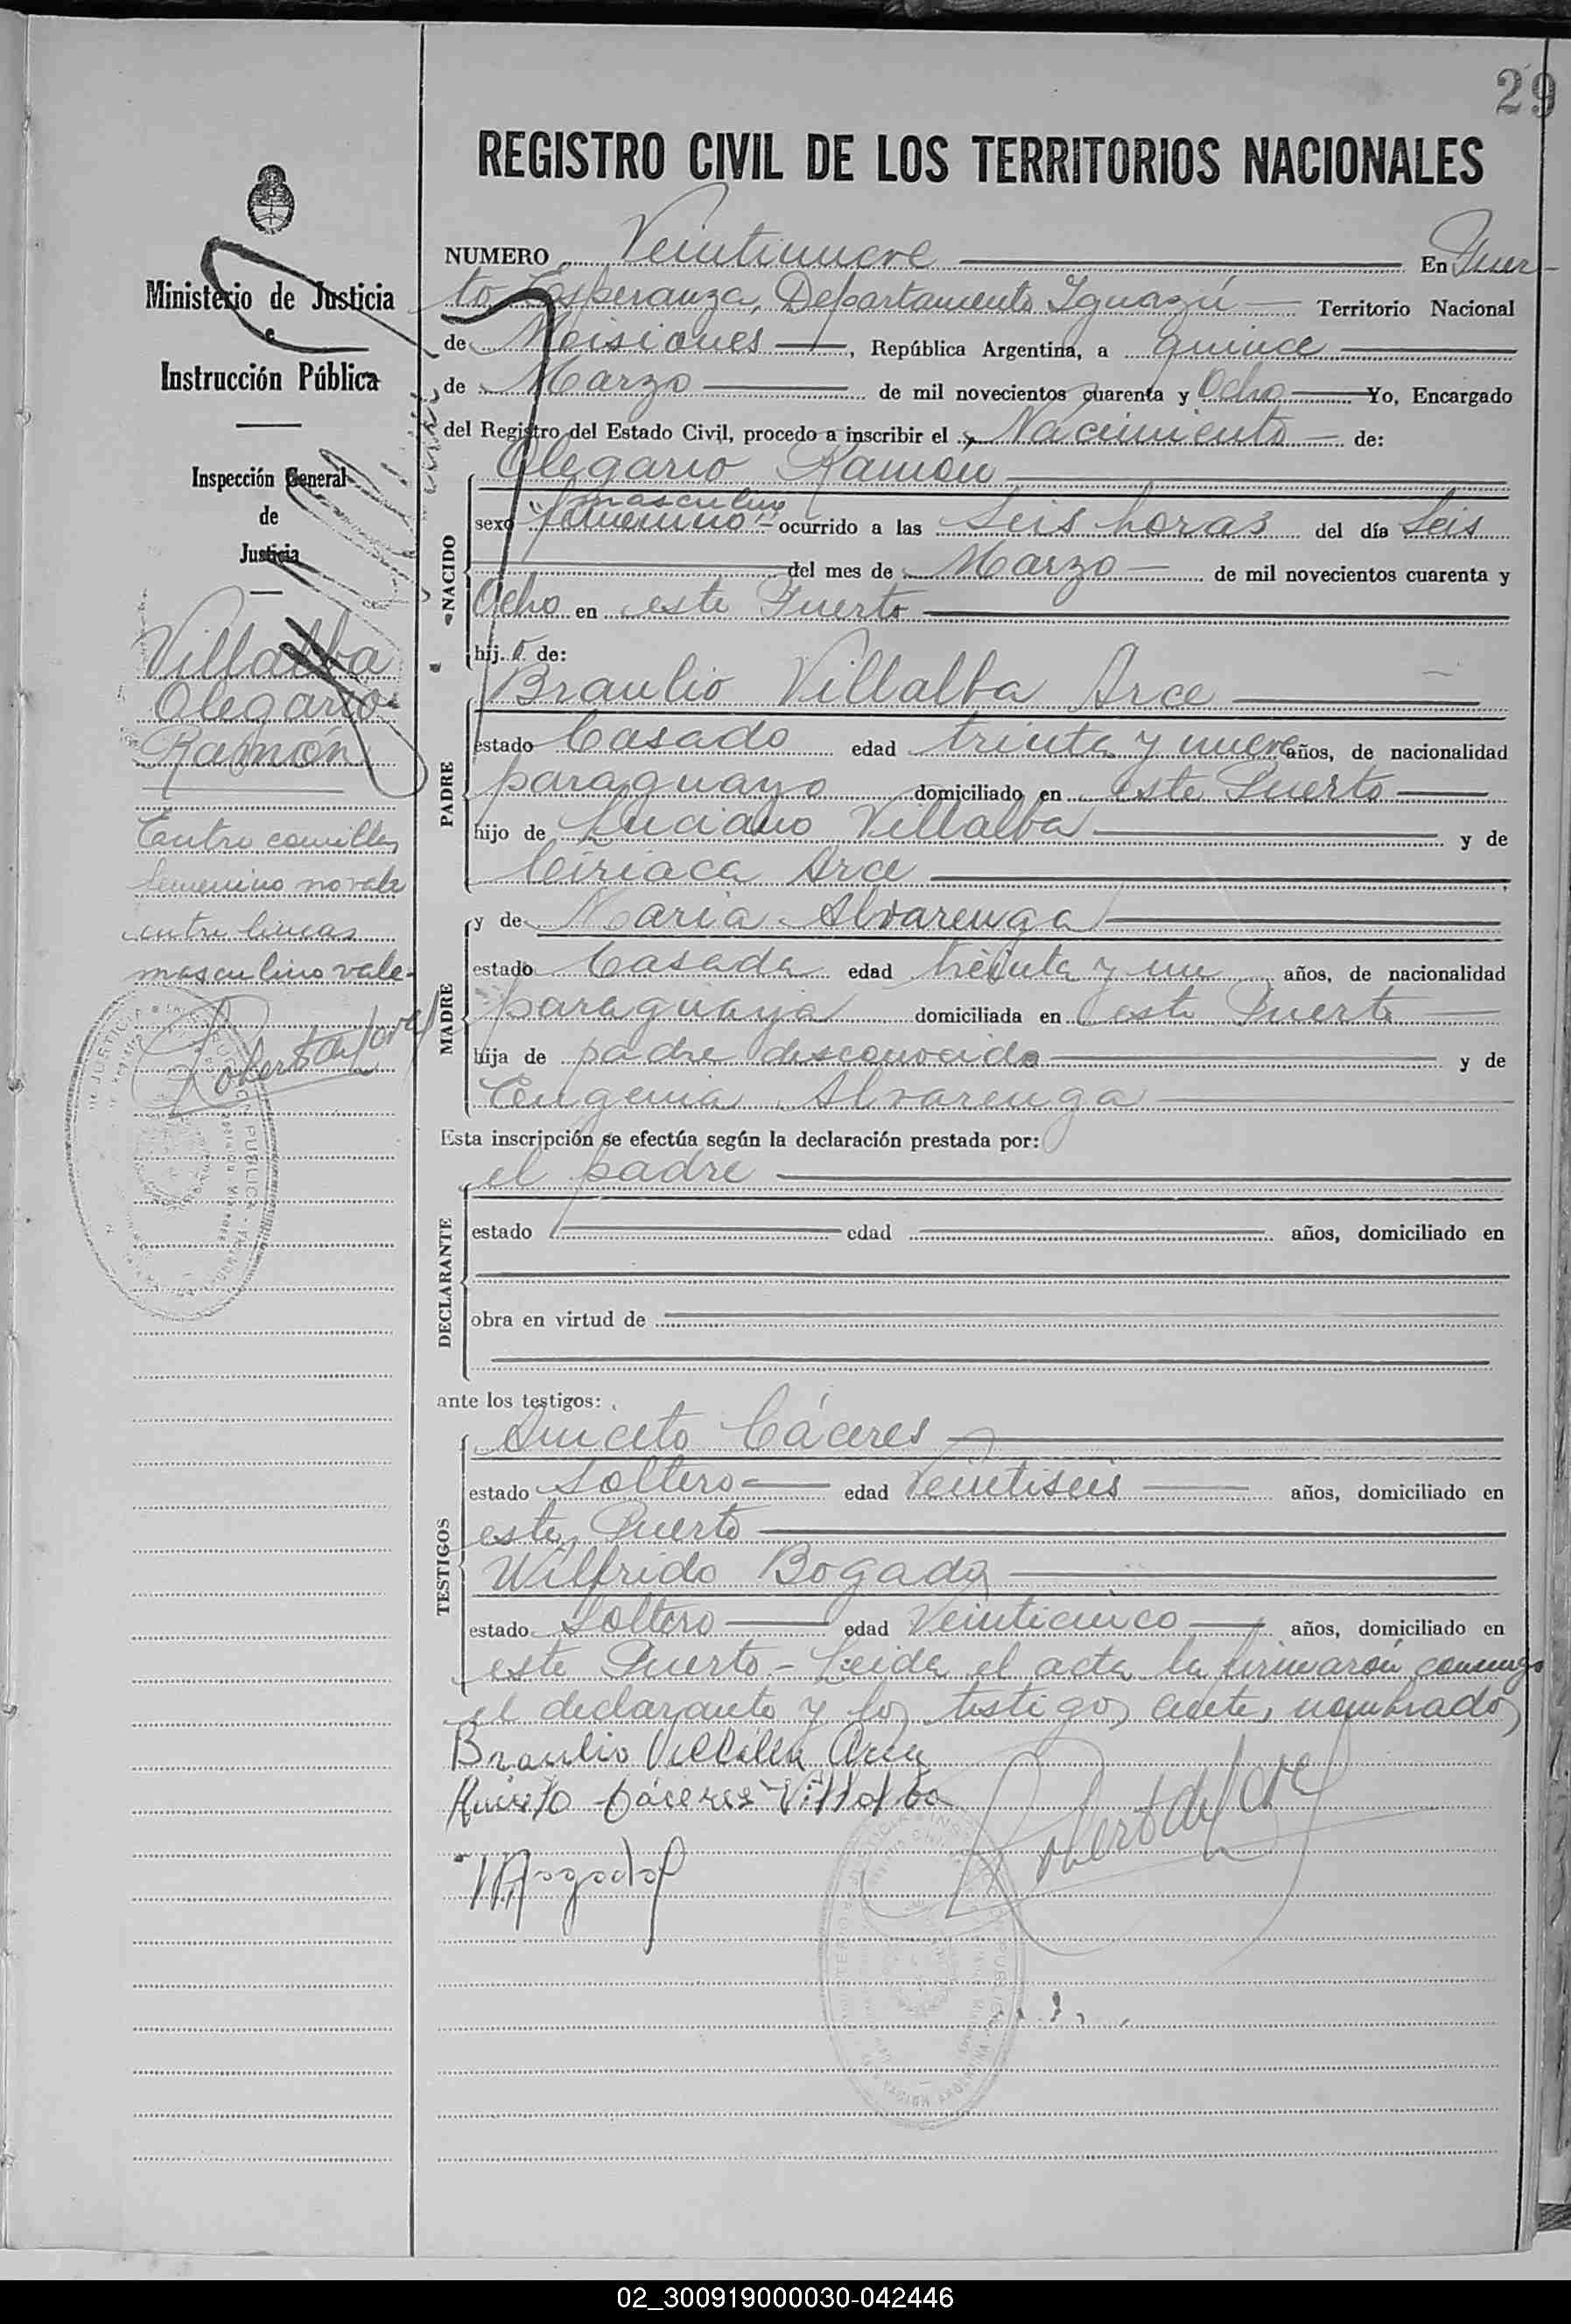 29
REGISTRO CIVIL DE LOS TERRITORIOS NACIONALES
Ministerio de Justicia
e
Instrucción Pública
Inspección General
de
Justicia
Villalba
Olegario
Ramón
Entre comillas
femenino no vale
entre lineas
masculino vale-
NUMERO Veintinueve En Puer-
to Esperanza, Departamento Iguazú Territorio Nacional
de Misiones, República Argentina, a quince
de Marzo de mil novecientos cuarenta y Ocho Yo, Encargado
del Registro del Estado Civil, procedo a inscribir el Nacimiento de:
NACIDO
Olegario Ramón
masculino
sexo "femenino"- ocurrido a las Seis horas del día Seis
del mes de Marzo de mil novecientos cuarenta y
Ocho en este Puerto
hij.o de:
PADRE
Braulio Villalba Arce
estado Casado edad treinta y nueve años, de nacionalidad
paraguayo domiciliado en este Puerto
hijo de Luciano Villalba y de
Ciriaca Arce
MADRE
y de Maria Alvarenga
estado Casada edad treinta y un años, de nacionalidad
paraguaya domiciliada en este Puerto
hija de padre desconocido y de
Eugenia Alvarenga
Esta inscripción se efectúa según la declaración prestada por:
el padre
DECLARANTE
estado edad años, domiciliado en
obra en virtud de
ante los testigos:
TESTIGOS
Aniceto Cáceres
estado Soltero edad Veintiseis años, domiciliado en
este Puerto
Wilfrido Bogado
estado Soltero edad Veinticinco años, domiciliado en
este Puerto - Leida el acta la firmarón conmigo
el declarante y los testigos antes nombrados
Braulio Villalba Arce
Aniceto Cáceres Villalba
02_300919000030-042446